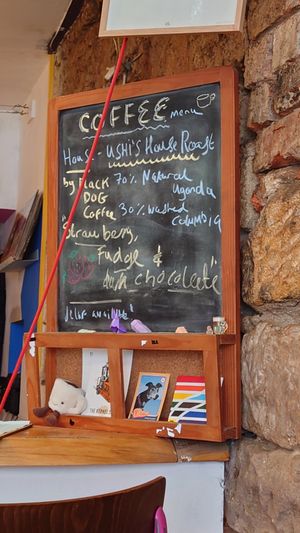 COFFEE menu
HOUSE - USHI'S HOUSE ROAST
by BLACK DOG Coffee
70% Natural Uganda
30% washed COLUMBIA
"Strawberry,
Fudge &
dark chocolate"
decaf available!